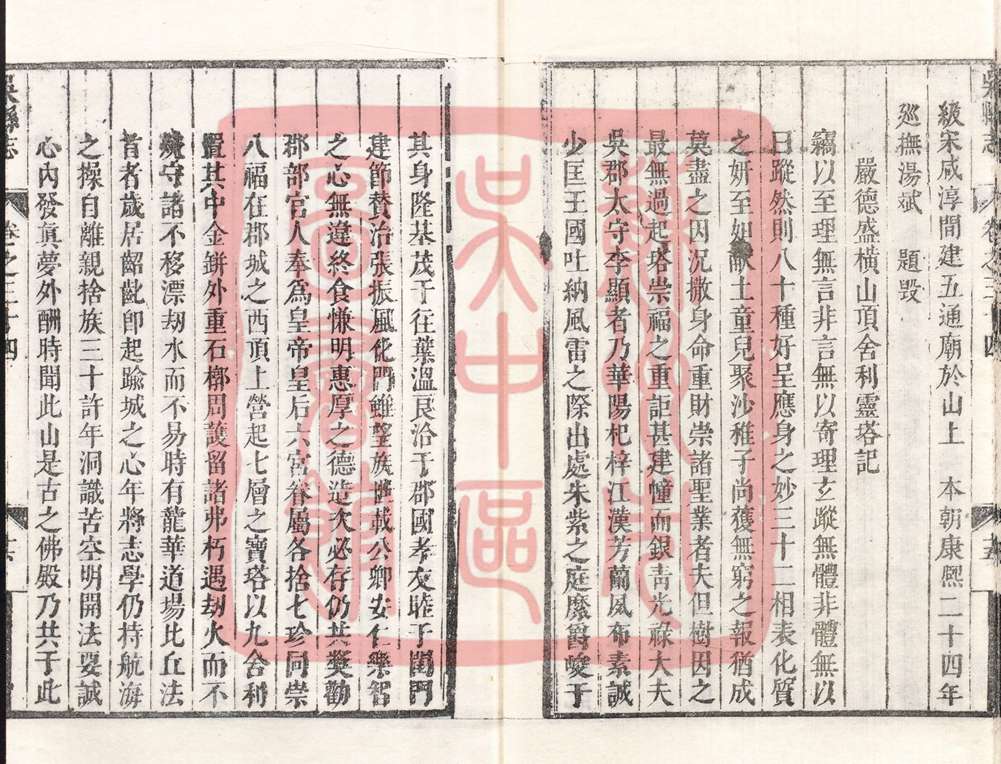 級宋咸淳間建五通廟於山上　本朝康熙二十四年
廵撫湯斌　題毀
嚴德盛橫山頂舍利靈塔記
竊以至理無言非言無以寄理玄蹤無體非體無以
曰蹤然則八十種好呈應身之妙三十二相表化質
之妍至如獻土童兒聚沙稚子尚獲無窮之報猶成
莫盡之因況撒身命重財崇諸聖業者夫但樹因之
最無過起塔崇福之重詎甚建幢而銀青光祿大夫
吳郡太守李顯者乃華陽杞梓江漢芳蘭夙布素誠
少匡王國吐納風雷之際出處朱紫之庭縻爵峻于
其身隆基茂于往葉溫良洽于郡國孝友睦于閨門
建節贊治張振風化門雖望族世載公卿安仁樂智
之心無違終食慊明惠厚之德造次必存仍共獎勸
郡部官人奉爲皇帝皇后六宮眷屬各捨七珍同崇
八福在郡城之西頂上營起七層之寶塔以九舍利
置其中金缾外重石槨周護留諸弗朽遇刼火而不
守諸不移漂刼水而不易時有龍華道場比丘法
首者歲居齠齔卽起踰城之心年將志學仍持航海
之操自離親捨族三十許年洞識苦空明開法要誠
心內發眞夢外酬時聞此山是古之佛殿乃共于此
吳縣志
卷之三十四
蘇州市吳中區圖書館